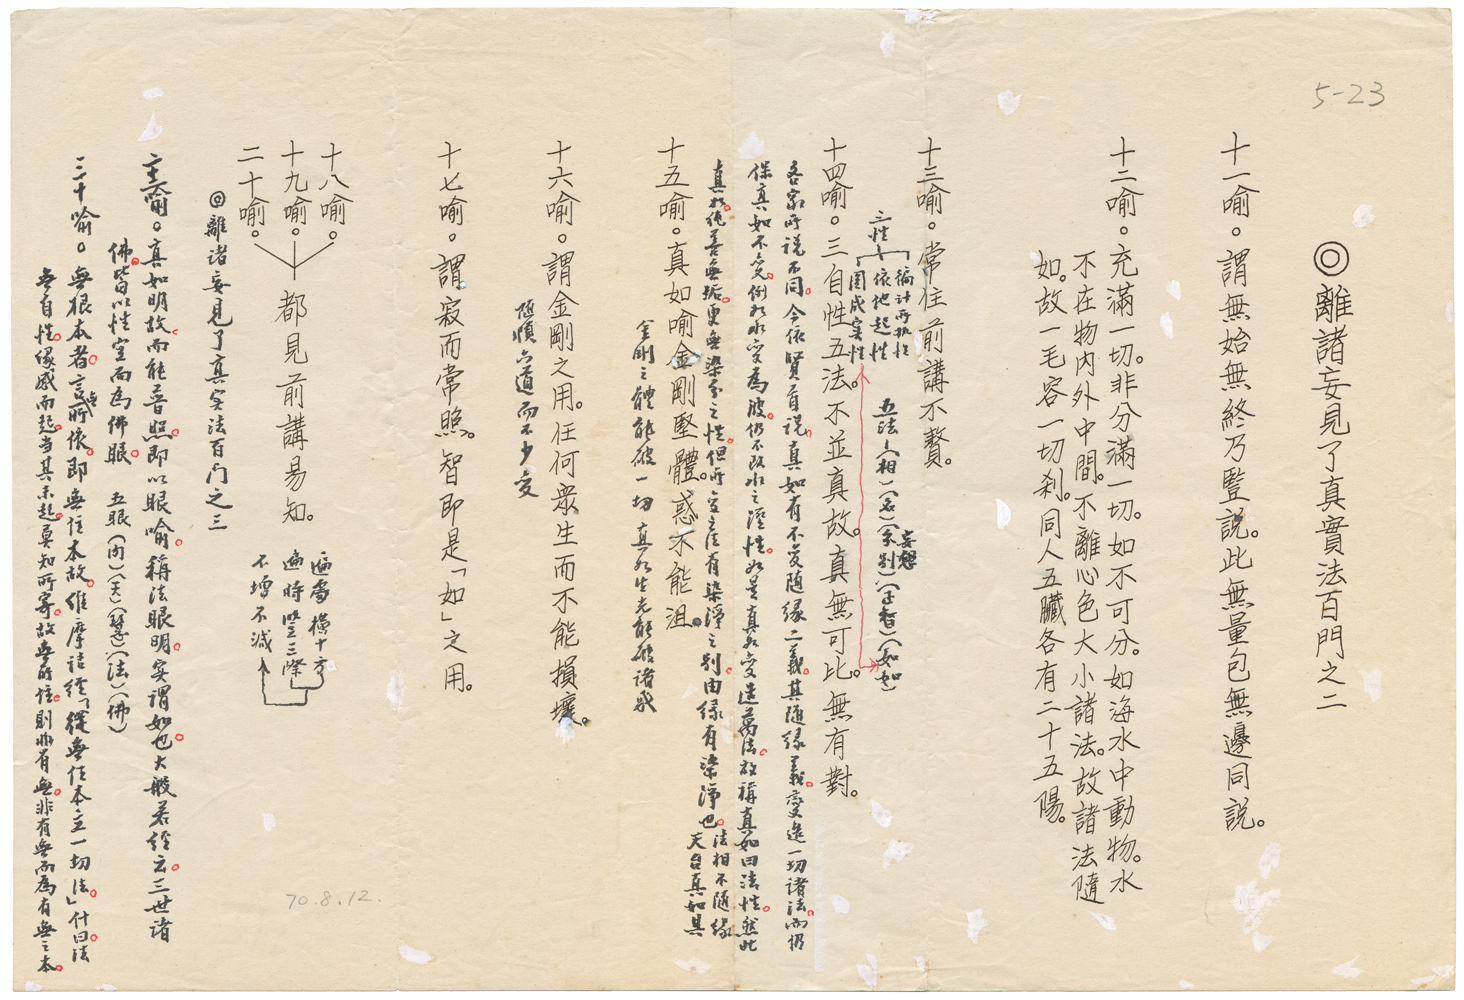 5-23
◎離諸妄見了真實法百門之二
十一喻。謂無始無終乃豎說。此無量包無邊同說。
十二喻。充滿一切。非分滿一切。如不可分。如海水中動物。水
不在物內外中間。不離心色大小諸法。故諸法隨
如。故一毛容一切剎。同人五臟各有二十五陽。
十三喻。常住前講不贅。
三性
徧計所執性
依他起性
圓成实性
五法(相)(名)(分别)(正智)(如如)
妄想
十四喻。三自性五法。不並真故。真無可比。無有對。
各家所说不同。今依賢首说。真如有不变随缘二義。其随缘義。变造一切诸法。而仍
保真如不变。例如水变為波。仍不改水之溼性。如是真如变造萬法。故稱真如曰法性。然此
真如純善無垢。更無染分之性。但所变之法有染淨之别。由缘有染淨也。
法相不隨緣
天台真如具
十五喻。真如喻金剛堅體。惑不能沮。
金剛之體能破一切 真如生光能破诸惑
十六喻。謂金剛之用。任何眾生而不能損壞。
隨順六道而不少变
十七喻。謂寂而常照。智即是「如」之用。
十八喻。
十九喻。
二十喻。
都見前講易知。
徧處橫十方
遍時豎三際
不增不減
70.8.12.
◎離諸妄見了真实法百门之三
主喻。真如明故。而能普照。即以眼喻。稱法眼明。实謂如也。大般若经云。三世诸
佛。皆以性空而為佛眼。 五眼(肉)(天)(慧)(法)(佛)
二十喻。無根本者。言無所依。即無住本故。維摩诘经「從無住本立一切法。」什曰。法
無自性。缘感而起。当其未起。莫知所寄。故無所住。則非有無。非有無而為有無之本。